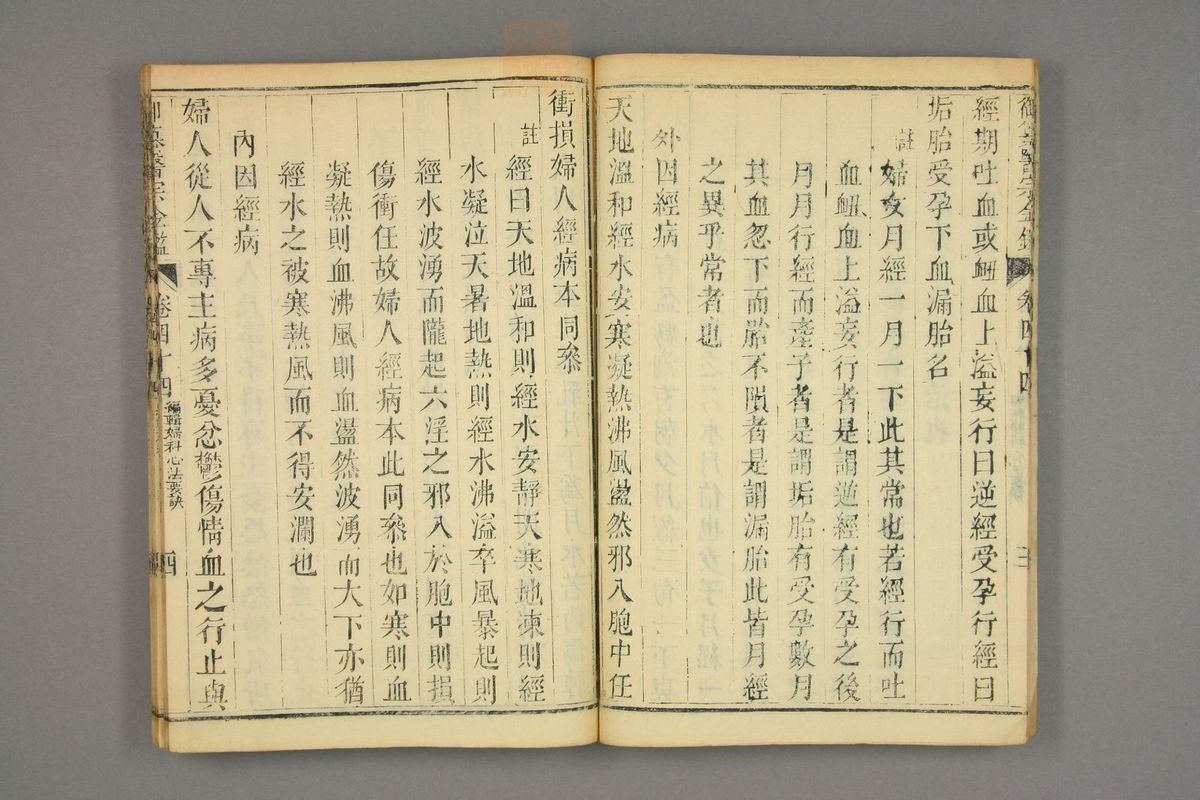 御纂醫宗金鑑 卷四十四 三
經期吐血或衄血上溢妄行曰逆經受孕行經曰
垢胎受孕下血漏胎名
註 婦女月經一月一下此其常也若經行而吐
血衄血上溢妄行者是謂逆經有受孕之後
月月行經而產子者是謂垢胎有受孕數月
其血忽下而胎不隕者是謂漏胎此皆月經
之異乎常者也
外因經病
天地溫和經水安寒凝熱沸風盪然邪入胞中任
衝損婦人經病本同叅
註 經曰天地溫和則經水安靜天寒地凍則經
水凝泣天暑地熱則經水沸溢卒風暴起則
經水波湧而隴起六淫之邪入於胞中則損
傷衝任故婦人經病本此同叅也如寒則血
凝熱則血沸風則血盪然波湧而大下亦猶
經水之被寒熱風而不得安瀾也
內因經病
婦人從人不專主病多憂忿鬱傷情血之行止與
御纂醫宗金鑑 卷四十四 編輯婦科心法要訣 四